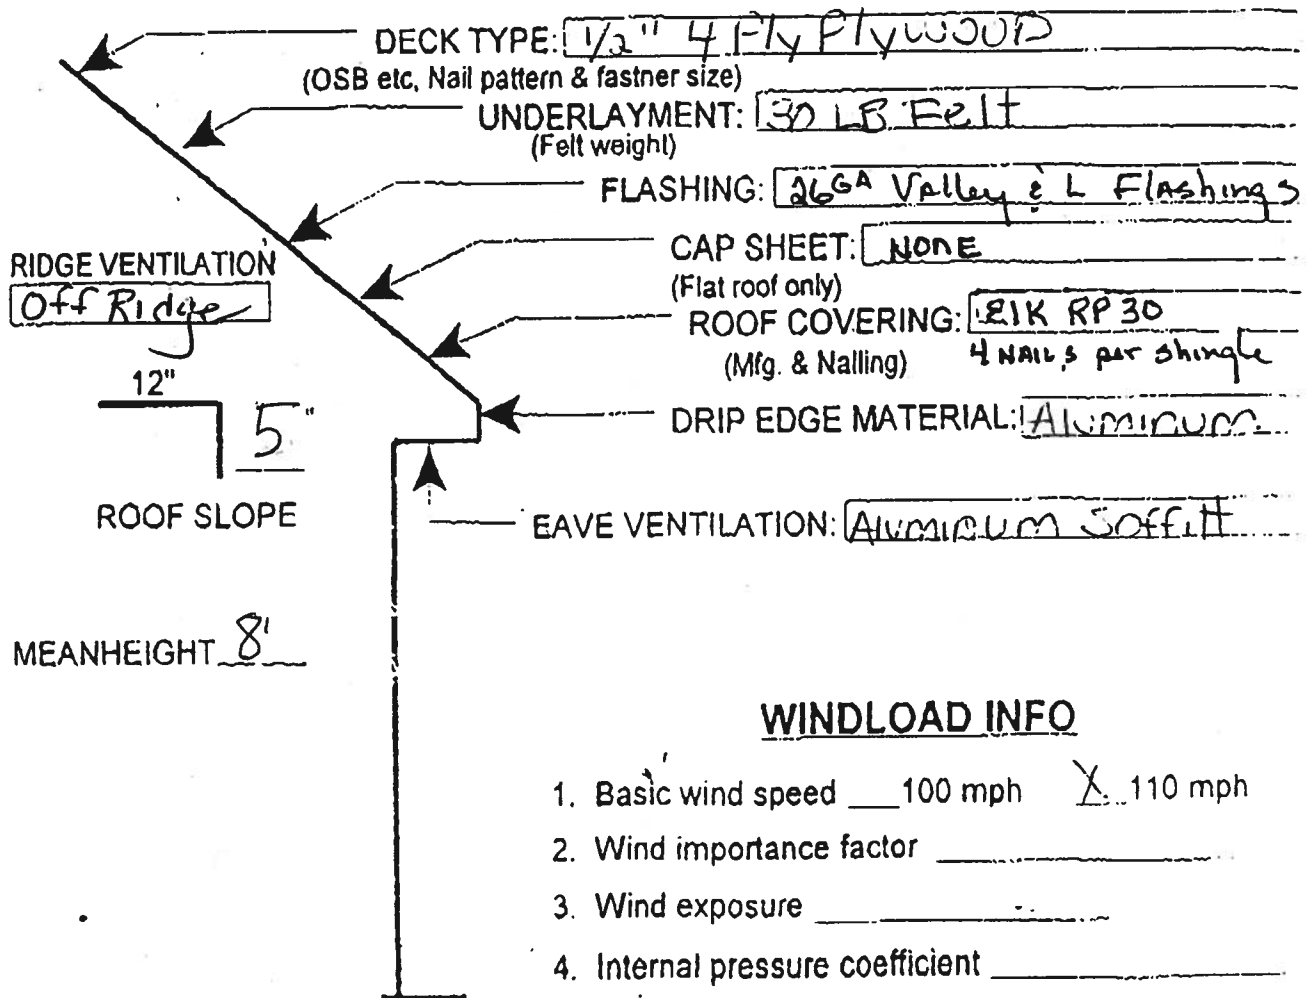 DECK TYPE: 1/2" 4 Ply PlyWOOD
(OSB etc, Nail pattern & fastner size)
UNDERLAYMENT: 30 LB Felt
(Felt weight)
FLASHING: 26GA Valley & L Flashings
CAP SHEET: NONE
(Flat roof only)
RIDGE VENTILATION
Off Ridge
ROOF COVERING: ElK RP 30
(Mfg. & Nailing) 4 NAILS per shingle
12"
5"
ROOF SLOPE
DRIP EDGE MATERIAL: Aluminum
EAVE VENTILATION: Aluminum Soffitt
MEANHEIGHT 8'
WINDLOAD INFO
1. Basic wind speed ___100 mph X 110 mph
2. Wind importance factor
3. Wind exposure
4. Internal pressure coefficient